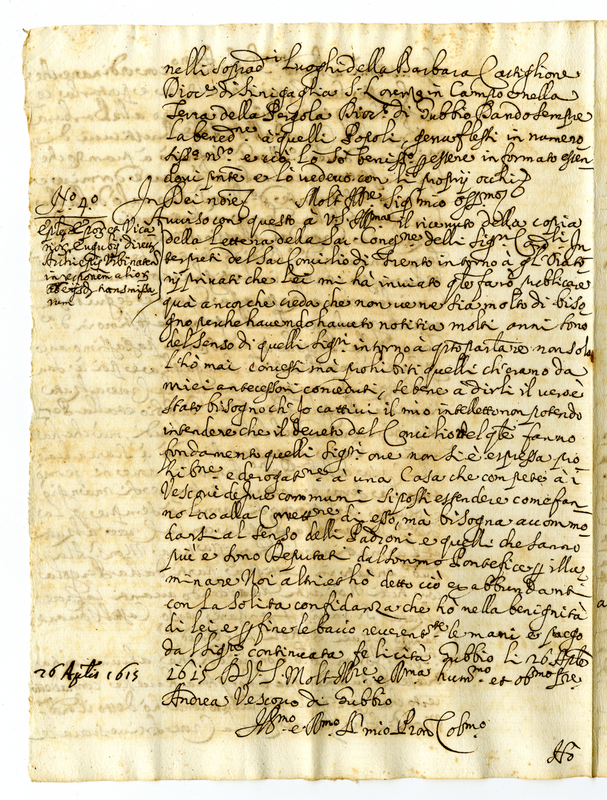 nelli soprad.ti Luoghi della Barbara Castiglione
Dioc.e di Sinigaglia S. Lorenzo in Campo e nella
Terra della Pergola Dioc.e di Gubbio Dando sempre
la bened.ne à quelli Popoli, genuflessi in numero
docui p.nte e lo vedevo con li proprij occhi
N.o 4.o
In Dei no[m]i[n]e Molt' Ill.re Sig.r mio oss.mo
Avviso con questo à V.S. Ill.ma il ricevuto della copia
della Lettera della Sac. Cong.ne delli Sig.ri Card.li In
terpreti del Sac. Concilio di Trento intorno à gl'Orato
rij privati che Lei mi hà inviato q.le farò publicare
quà ancorche creda che non ve ne sia molto di biso
gno perche havendo havuto notitia molti anni sono
del senso di quelli Sig.ri intorno à q.to part.re non solo
l'hò mai concessi ma prohibiti quelli ch'erano da
miei antecessori conceduti, se bene à dirli il vero è
stato bisogno ch'Io cattivi il mio intelletto non potendo
intendere che il decreto del Concilio del q.le fanno
fondamento quelli Sig.ri ove non si è espressa pro
hib.ne e derogat.ne à una Cosa che compete à i
Vescovi de iure communi si possi estendere come fan
no loro alla Corrett.ne di esso, mà bisogna accommo
darsi al senso delli Padroni e quelli che sanno
più e sono Deputati dal sommo Pontefice p illu
minare Noi altri et hò detto ciò ex abbundanti
con la solita confidanza che hò nella benignità
di lei e p fine le bacio reverent.te le mani e prego
dal Sig.re continuata felicità Gubbio li 26 Ap.le
26 Ap[ri]lis 1615
1615 D. V. S. Molt' Ill.re e R.ma hum.mo et ob.mo Ser.re
Andrea Vescovo di Gubbio
Ill.mo e R.mo S.r mio Pron Col.mo